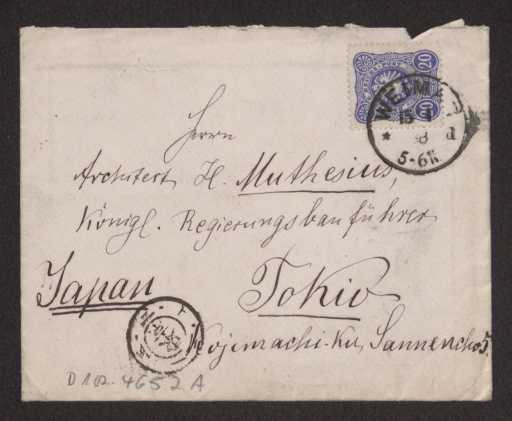 20
WEIMAR
5-6N
Herrn
Architect H. Muthesius,
Königl. Regierungsbauführer
Japan
Tokio
Kojimachi-Ku, Sannencho 5.
D 102-4652 A